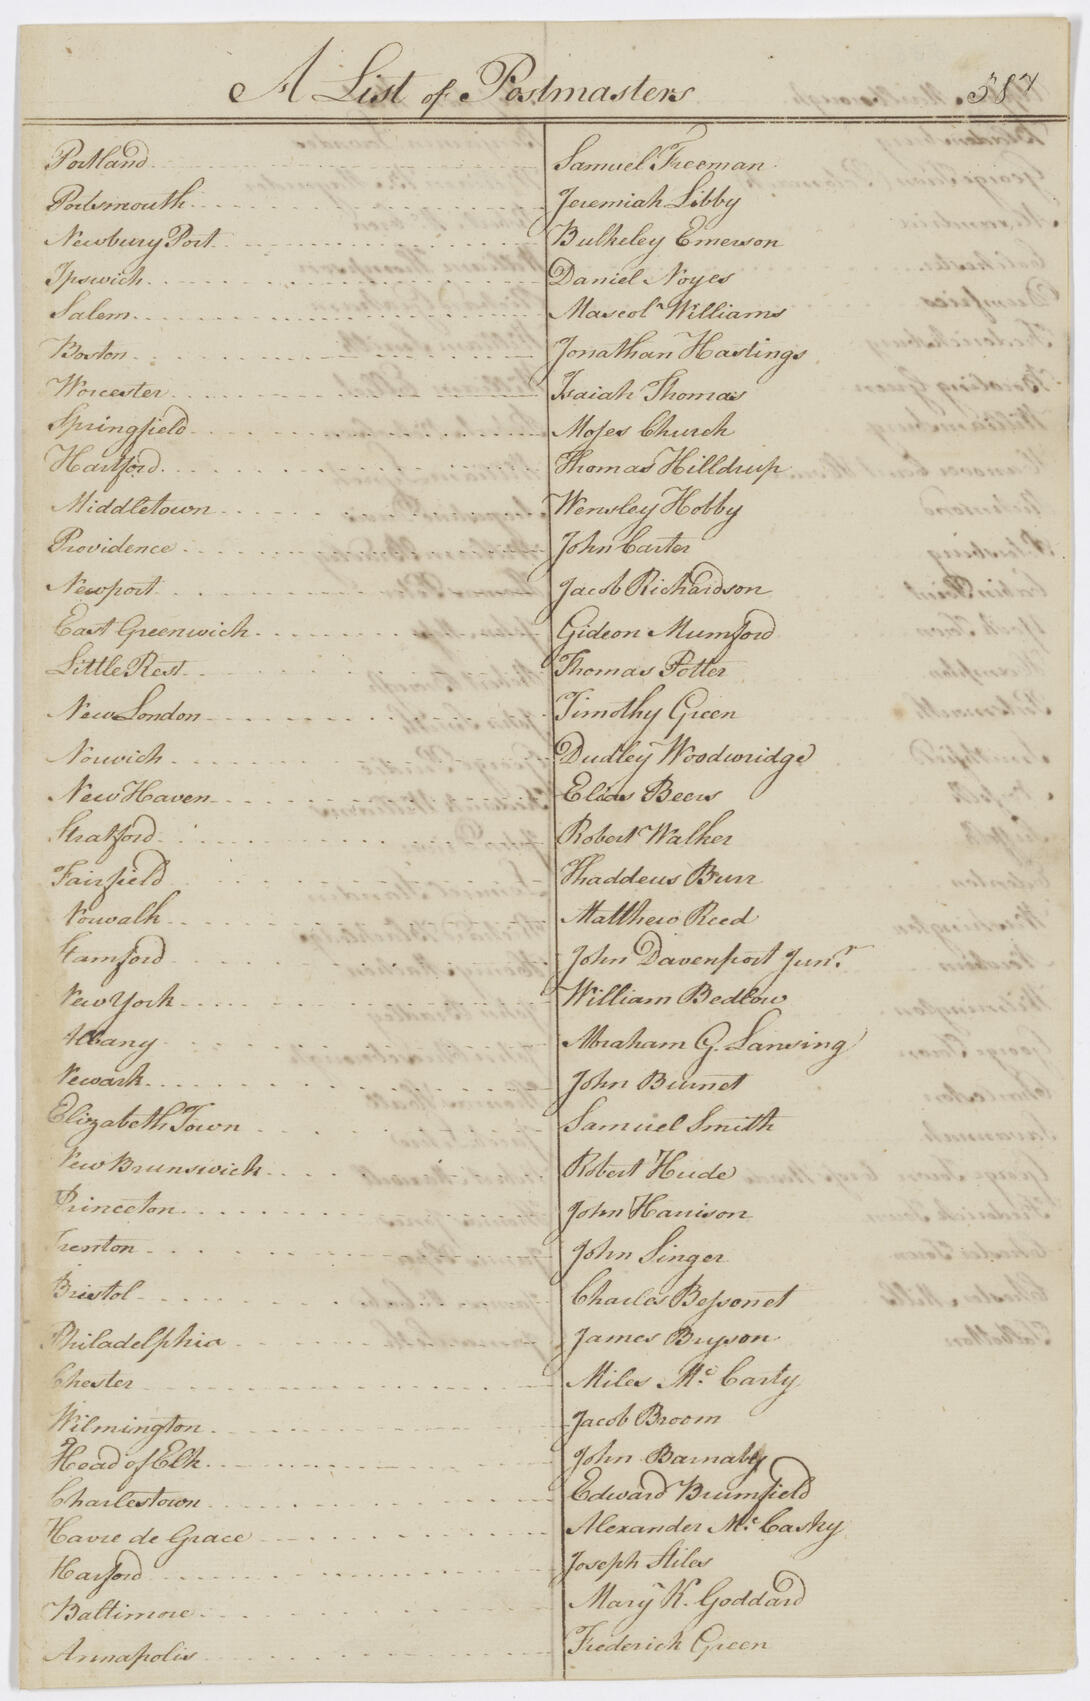 A List of Postmasters 387
Portland Samuel Freeman
Portsmouth Jeremiah Libby
Newbury Port Bulkeley Emerson
Ipswich Daniel Noyes
Salem Mascol Williams
Boston Jonathan Hastings
Worcester Isaiah Thomas
Springfield Moses Church
Hartford Thomas Hilldrup
Middletown Wensley Hobby
Providence John Carter
Newport Jacob Richardson
East Greenwich Gideon Mumford
Little Rest Thomas Potter
New London Timothy Green
Norwich Dudley Woodwridge
New Haven Elias Beers
Stratford Robert Walker
Fairfield Thaddeus Burr
Norwalk Matthew Reed
Stamford John Davenport Junr.
New York William Bedlow
Albany Abraham G. Lansing
Newark John Burnet
Elizabeth Town Samuel Smith
New Brunswick Robert Hude
Princeton John Harrison
Trenton John Singer
Bristol Charles Bessonet
Philadelphia James Bryson
Chester Miles Mc Carty
Wilmington Jacob Broom
Head of Elk John Barnaby
Charlestown Edward Brumfield
Havre de Grace Alexander Mc Casky
Harford Joseph Stiles
Baltimore Mary K. Goddard
Annapolis Frederick Green